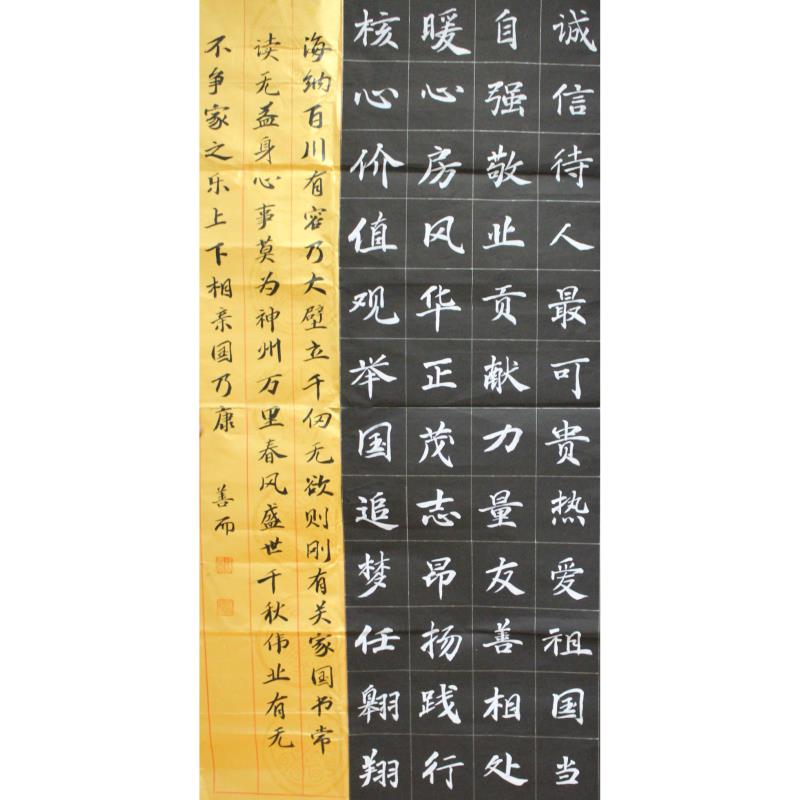 诚信待人最可贵热爱祖国当
自强敬业贡献力量友善相处
暖心房风华正茂志昂扬践行
核心价值观举国追梦任翱翔
海纳百川有容乃大壁立千仞无欲则刚有关家国书常
读无益身心事莫为神州万里春风盛世千秋伟业有无
不争家之乐上下相亲国乃康 善而